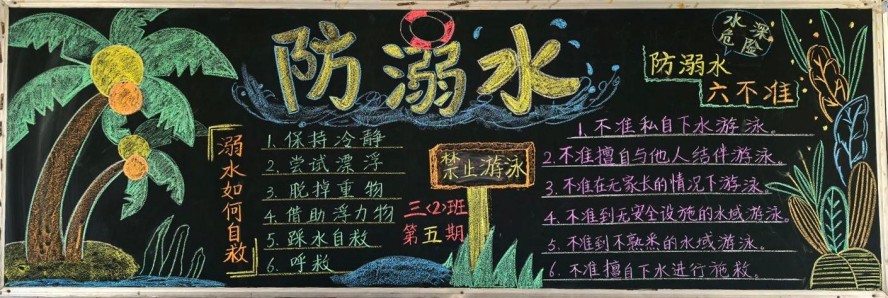 防溺水
水深
危险
防溺水
六不准
溺水如何自救
1、保持冷静
2、尝试漂浮
3、脱掉重物
4、借助浮力物
5、踩水自救
6、呼救
禁止游泳
三〈2〉班
第五期
1、不准私自下水游泳。
2、不准擅自与他人结伴游泳。
3、不准在无家长的情况下游泳。
4、不准到无安全设施的水域游泳。
5、不准到不熟悉的水域游泳。
6、不准擅自下水进行施救。